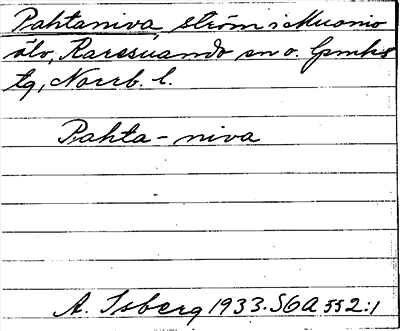 Pahtaniva, ström i Muonio
älv, Karesuando sn o. lpmks
tg, Norrb. l.
Pahta-niva
A. Isberg 1933. SOA 552:1